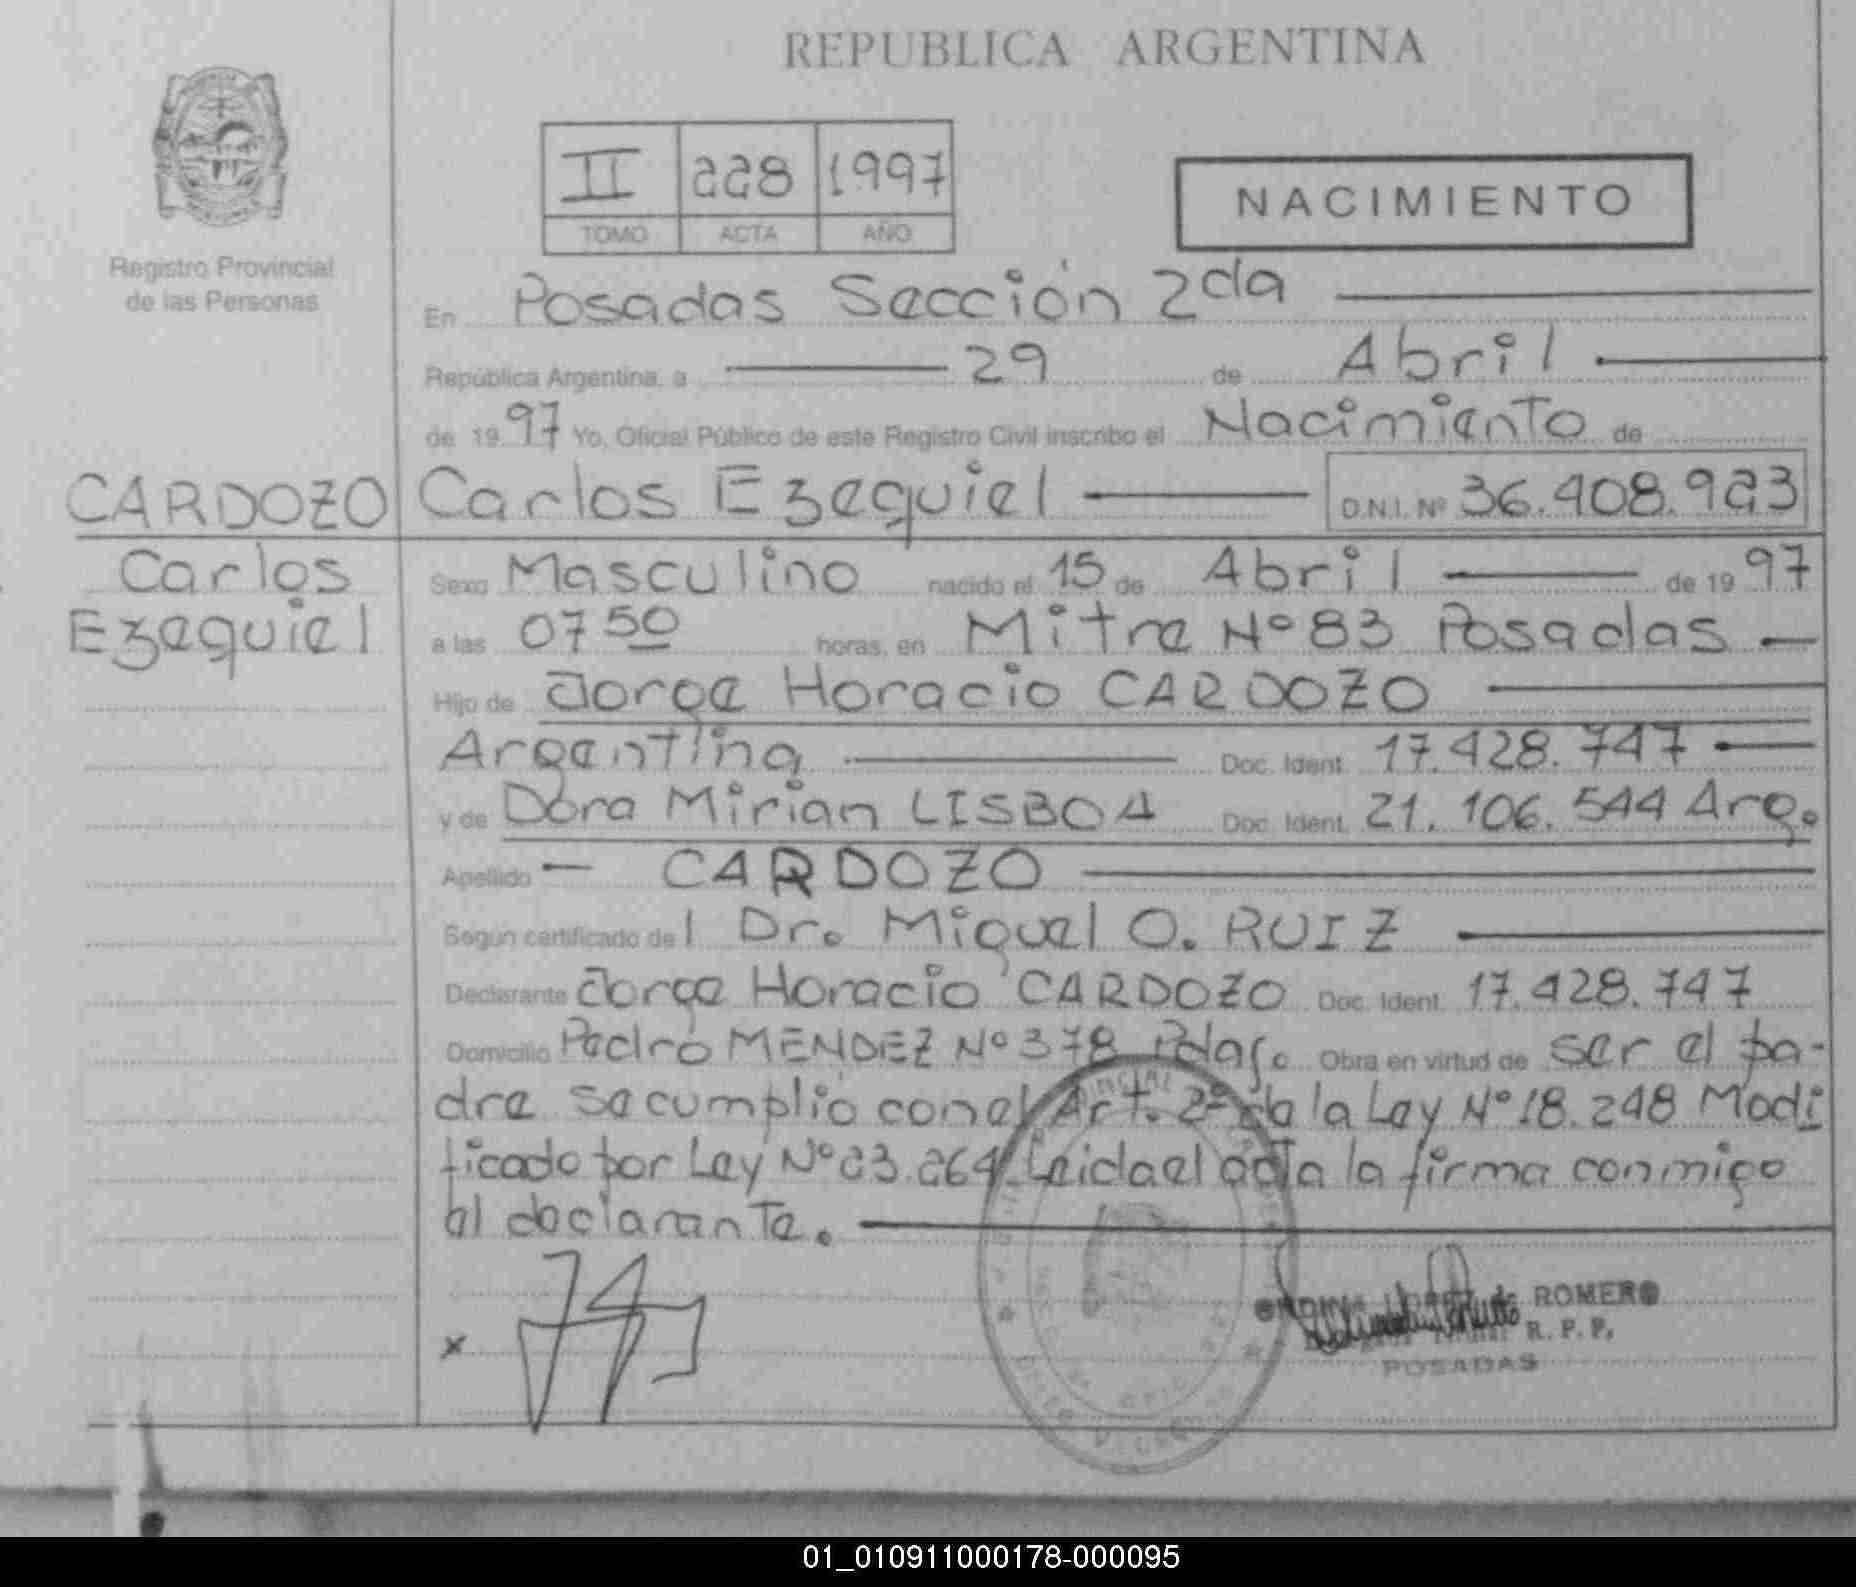 REPUBLICA ARGENTINA
II 228 1997
TOMO ACTA AÑO
NACIMIENTO
Registro Provincial
de las Personas
En Posadas Sección 2da
República Argentina, a 29 de Abril
de 1997 Yo, Oficial Público de este Registro Civil inscribo el Nacimiento de
CARDOZO Carlos Ezequiel D.N.I. Nº 36.408.923
Carlos
Ezequiel
Sexo Masculino nacido el 15 de Abril de 1997
a las 07 50 horas, en Mitre Nº 83 Posadas
Hijo de Jorge Horacio CARDOZO
Argentina Doc. Ident. 17.428.747
y de Dora Mirian LISBOA Doc. Ident. 21.106.544 Arg.
Apellido CARDOZO
Según certificado del Dr. Miguel O. RUIZ
Declarante Jorge Horacio CARDOZO Doc. Ident. 17.428.747
Domicilio Pedro MENDEZ Nº 378 Pdas. Obra en virtud de ser el pa-
dre se cumplió con el Art. 2º de la Ley Nº 18.248 Modi
ficado por Ley Nº 23.264 Leida el acta la firma conmigo
el declarante.
x
ROMERO
R. P. P.
POSADAS
01_010911000178-000095